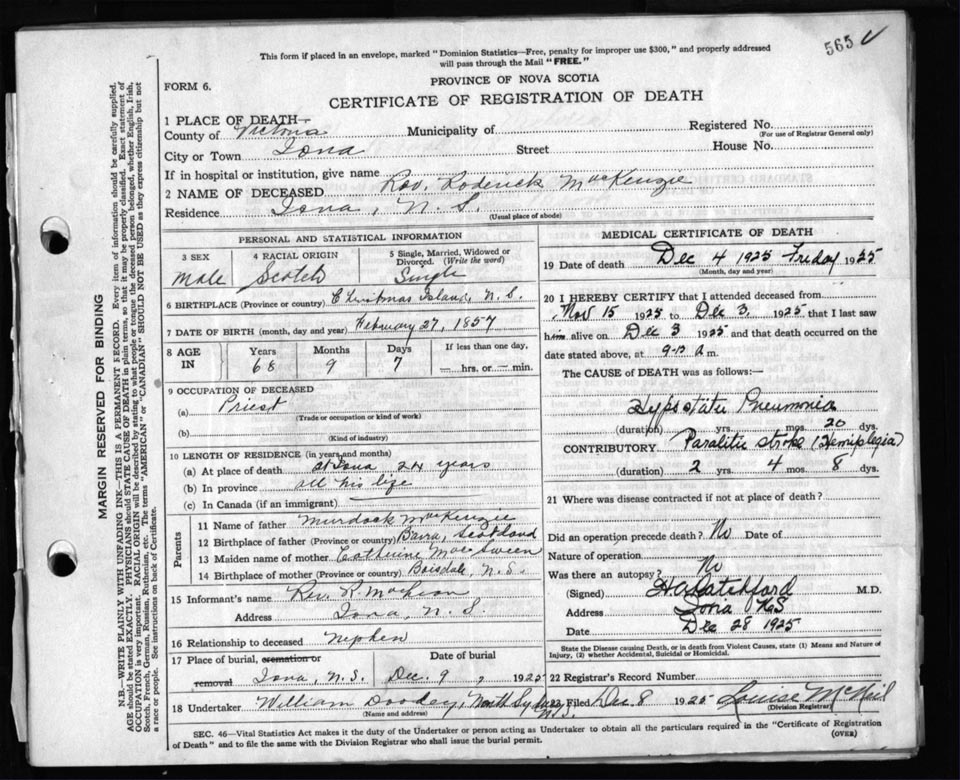 565 ✓
This form if placed in an envelope, marked "Dominion Statistics—Free, penalty for improper use $300," and properly addressed
will pass through the Mail "FREE."
FORM 6.
PROVINCE OF NOVA SCOTIA
CERTIFICATE OF REGISTRATION OF DEATH
1 PLACE OF DEATH—
County of Victoria Municipality of Registered No.
(For use of Registrar General only)
City or Town Iona Street House No.
If in hospital or institution, give name
2 NAME OF DECEASED Rev. Roderick MacKenzie
Residence Iona, N. S.
(Usual place of abode)
PERSONAL AND STATISTICAL INFORMATION
3 SEX 4 RACIAL ORIGIN 5 Single, Married, Widowed or
Divorced. (Write the word)
Male Scotch Single
6 BIRTHPLACE (Province or country) Christmas Island, N. S.
7 DATE OF BIRTH (month, day and year) February 27, 1857
8 AGE Years Months Days If less than one day,
IN 68 9 7 — hrs. or — min.
9 OCCUPATION OF DECEASED
(a) Priest
(Trade or occupation or kind of work)
(b)
(Kind of industry)
10 LENGTH OF RESIDENCE (in years and months)
(a) At place of death at Iona 24 years
(b) In province all his life
(c) In Canada (if an immigrant)
Parents
11 Name of father Murdock MacKenzie
12 Birthplace of father (Province or country) Barra, Scotland
13 Maiden name of mother Catherine MacSween
14 Birthplace of mother (Province or country) Boisdale, N. S.
15 Informant's name Rev. R.
Address Iona, N. S.
16 Relationship to deceased Nephew
17 Place of burial, cremation or Date of burial
removal Iona, N. S. Dec. 9, 1925
18 Undertaker William Dooley, North Sydney N.S.
(Name and address)
MEDICAL CERTIFICATE OF DEATH
19 Date of death Dec 4 1925 Friday 1925
(Month, day and year)
20 I HEREBY CERTIFY that I attended deceased from
Nov 15 1925 to Dec 3 1925 that I last saw
him alive on Dec 3 1925 and that death occurred on
date stated above, at a m.
The CAUSE of DEATH was as follows:—
Hypostatic Pneumonia
(duration) yrs. mos. 20 ds.
CONTRIBUTORY Paralitic Stroke (Hemiplegia)
(duration) 2 yrs. 4 mos. 8 dys.
21 Where was disease contracted if not at place of death?
Did an operation precede death? No Date of
Nature of operation
Was there an autopsy? No
(Signed) M.D.
Address Iona NS
Date Dec 28 1925
State the Disease causing Death, or in death from Violent Causes, state (1) Means and Nature of
Injury, (2) whether Accidental, Suicidal or Homicidal.
22 Registrar's Record Number
23 Filed Dec 8 1925 Louise McNeil
(Division Registrar)
SEC. 46—Vital Statistics Act makes it the duty of the Undertaker or person acting as Undertaker to obtain all the particulars required in the "Certificate of Registration
of Death" and to file the same with the Division Registrar who shall issue the burial permit. (OVER)
MARGIN RESERVED FOR BINDING
N.B.—WRITE PLAINLY WITH UNFADING INK—THIS IS A PERMANENT RECORD. Every item of information should be carefully supplied.
AGE should be stated EXACTLY. PHYSICIANS should STATE CAUSE OF DEATH in plain terms, so that it may be properly classified. Exact statement of
OCCUPATION is very important. RACIAL ORIGIN will be described by stating to what people or tongue the deceased person belonged, whether English, Irish,
Scotch, French, German, Russian, Ruthenian, etc. The terms "AMERICAN" or "CANADIAN" SHOULD NOT BE USED as they express citizenship but not
a race or people. See instructions on back of Certificate.